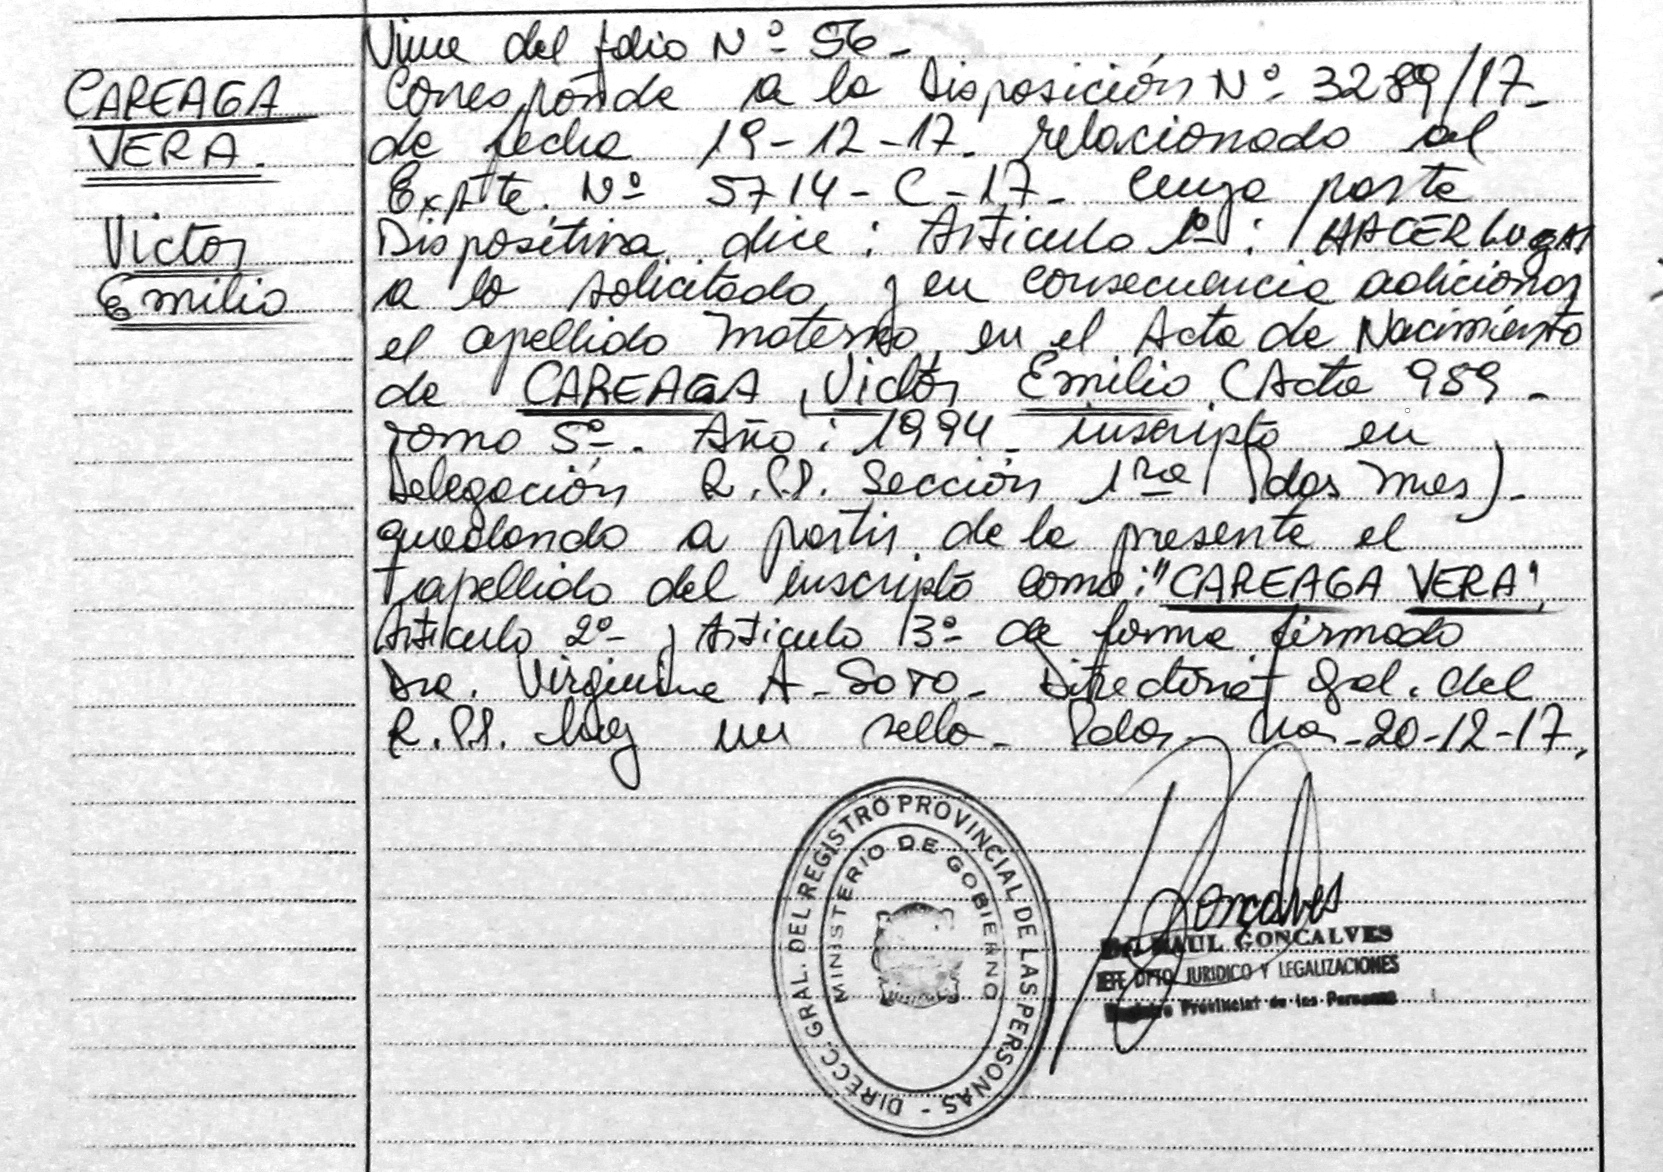 Viene del folio Nº 56-
CAREAGA
VERA.
Victor
Emilio
Corresponde a la Disposición Nº 3289/17-
de fecha 19-12-17- relacionado al
Expte. Nº 5714-C-17- cuya parte
Dispositiva dice: Articulo 1º: HACER Lugar
a lo solicitado y en consecuencia adicionar
el apellido materno en el Acta de Nacimiento
de CAREAGA, Victor Emilio (Acta 989-
Tomo 5º-. Año: 1994- inscripto en
Delegación R.P.P. Sección 1ra Pdas Mnes)-
quedando a partir de la presente el
apellido del inscripto como: "CAREAGA VERA"
Articulo 2º-, Articulo 3º- de forma firmado
Dra. Virginia A-Soto- Directora Gral. del
R.P.P. hay un sello- Pdas Mnes-20-12-17.
DIRECC. GRAL. DEL REGISTRO PROVINCIAL DE LAS PERSONAS -
MINISTERIO DE GOBIERNO
Goncalves
RAUL GONCALVES
JEFE DPTO JURIDICO Y LEGALIZACIONES
Registro Provincial de las Personas